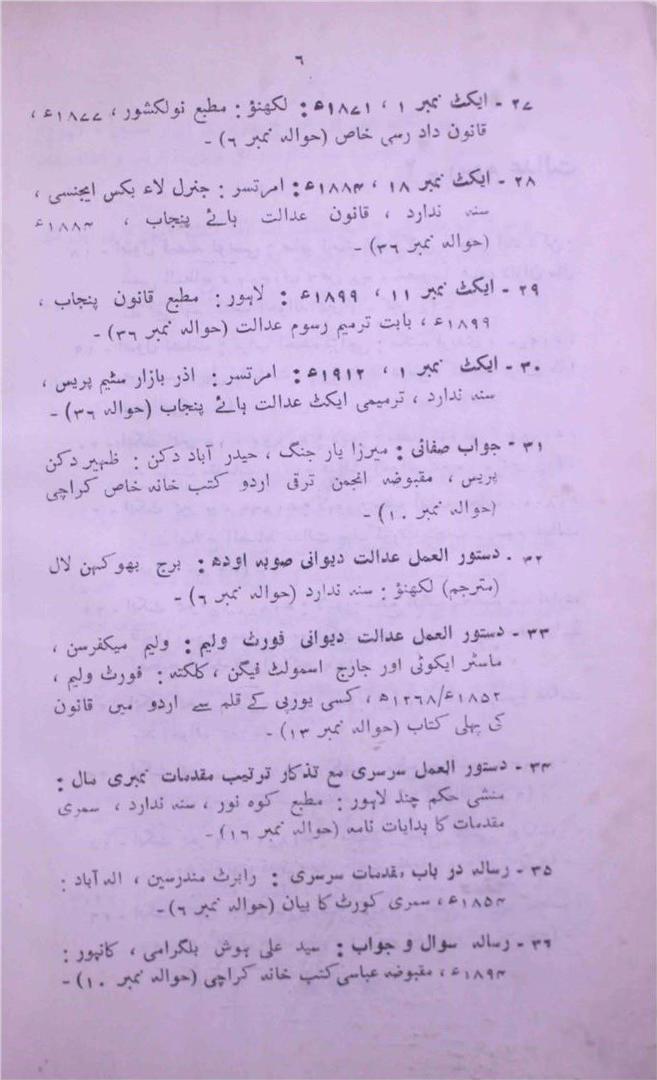 ٦
٢٧ - ایکٹ نمبر ١ ، ١٨٧١ء : لکھنؤ : مطبع نولکشور ، ١٨٧٧ء ،
قانون داد رسی خاص (حوالہ نمبر ٦) -
٢٨ - ایکٹ نمبر ١٨ ، ١٨٨٤ء : امرتسر : جنرل لاء بکس ایجنسی ،
سنہ ندارد ، قانون عدالت ہائے پنجاب ، ١٨٨٤ء
(حوالہ نمبر ٣٦) -
٢٩ - ایکٹ نمبر ١١ ، ١٨٩٩ء : لاہور : مطبع قانون پنجاب ،
١٨٩٩ء ، بابت ترمیم رسوم عدالت (حوالہ نمبر ٣٦) -
٣٠ - ایکٹ نمبر ١ ، ١٩١٢ء : امرتسر : اذر بازار سٹیم پریس ،
سنہ ندارد ، ترمیمی ایکٹ عدالت ہائے پنجاب (حوالہ نمبر ٣٦) -
٣١ - جواب صفائی : میرزا یار جنگ ، حیدر آباد دکن : ظہیر دکن
پریس ، مقبوضہ انجمن ترقی اردو کتب خانہ خاص کراچی
(حوالہ نمبر ١٠) -
٣٢ - دستور العمل عدالت دیوانی صوبہ اودھ : برج بھوکھن لال
(مترجم) لکھنؤ : سنہ ندارد (حوالہ نمبر ٦) -
٣٣ - دستور العمل عدالت دیوانی فورٹ ولیم : ولیم میکفرسن ،
ماسٹر ایکوٹی اور جارج اسمولٹ فیگن ، کلکتہ : فورٹ ولیم ،
١٨٥٢ء/١٢٦٨ھ ، کسی یورپی کے قلم سے اردو میں قانون
کی پہلی کتاب (حوالہ نمبر ١٣) -
٣٤ - دستور العمل سرسری مع تذکار ترتیب مقدمات نمبری مال :
منشی حکم چند لاہور : مطبع کوہ نور ، سنہ ندارد ، سمری
مقدمات کا ہدایات نامہ (حوالہ نمبر ١٦) -
٣٥ - رسالہ در باب مقدمات سرسری : رابرٹ مندرسین ، الہ آباد :
١٨٥٤ء ، سمری کورٹ کا بیان (حوالہ نمبر ٦) -
٣٦ - رسالہ سوال و جواب : سید علی ہوش بلگرامی ، کانپور :
١٨٩٤ء ، مقبوضہ عباسی کتب خانہ کراچی (حوالہ نمبر ١٠) -